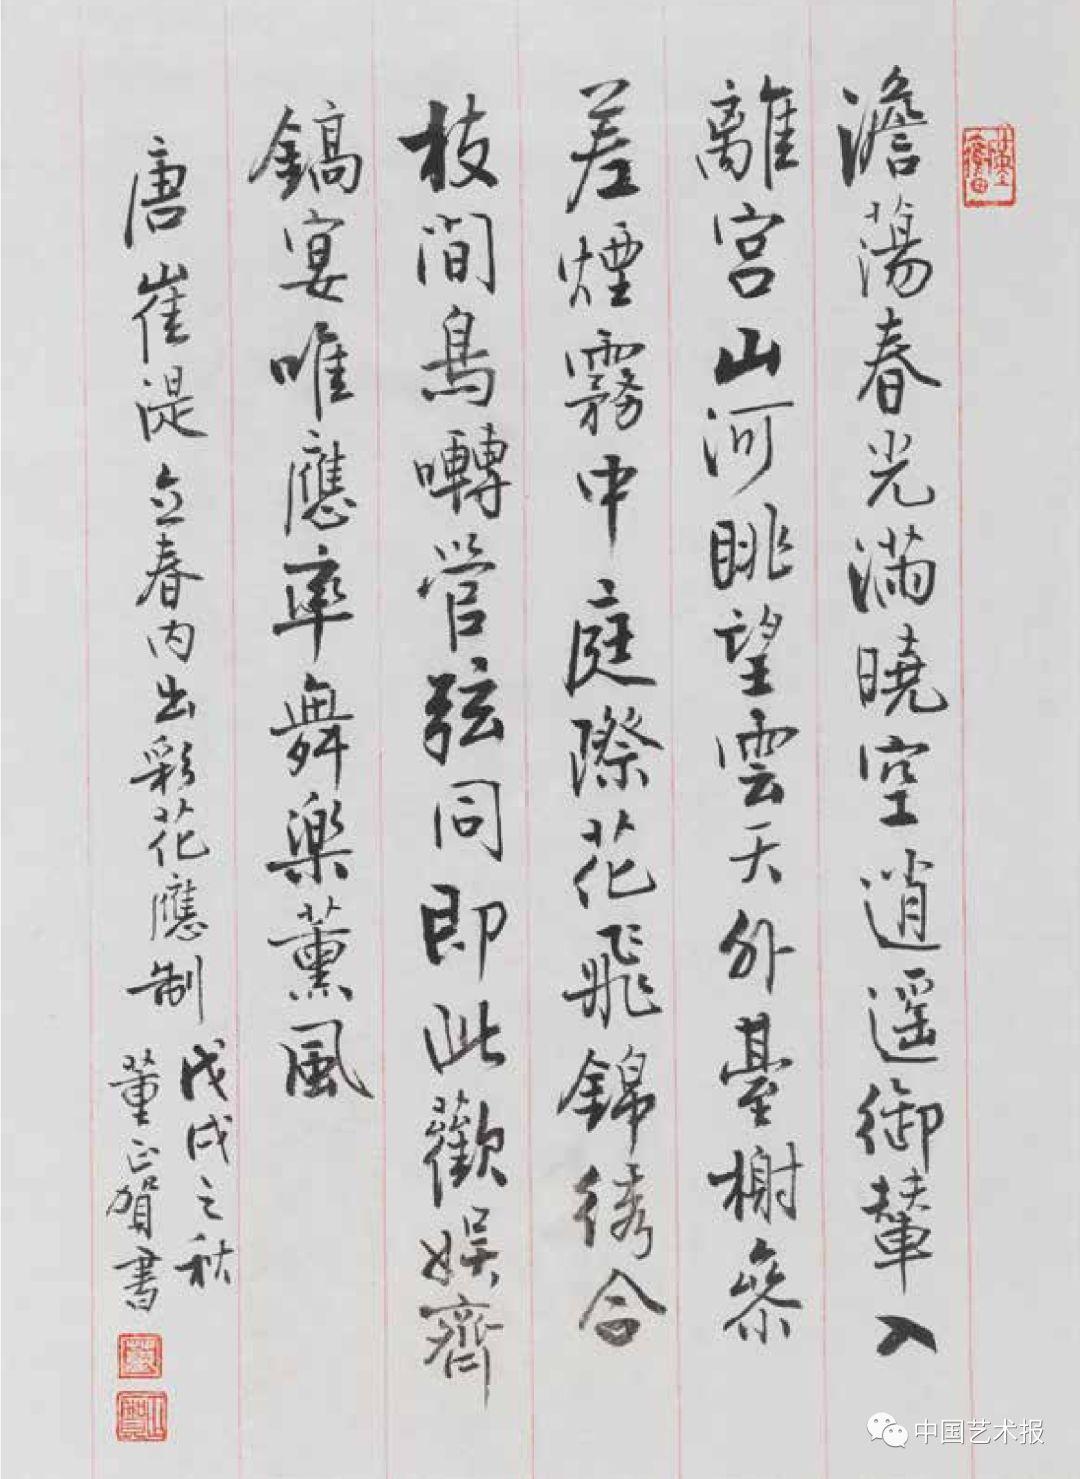 澹蕩春光滿曉空逍遥御輦入
離宮山河眺望雲天外臺榭參
差煙霧中庭際花飛錦綉合
枝間鳥囀管弦同即此歡娱齊
鎬宴唯應率舞樂薰風
唐崔湜立春内出彩花應制
戊戌之秋
董正賀書
中国艺术报